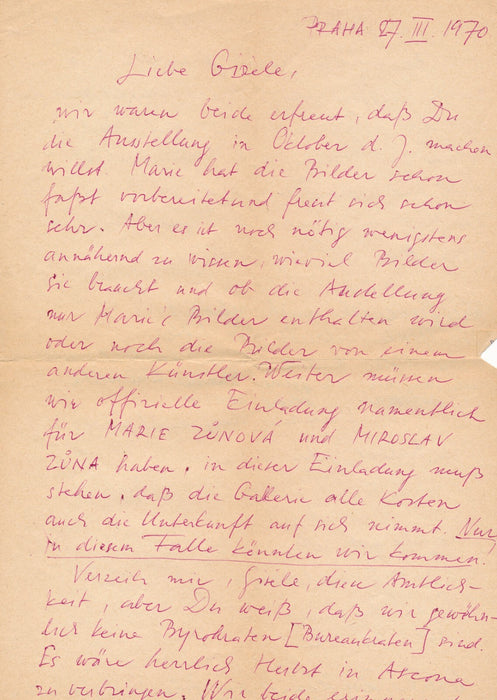 PRAHA 27. III. 1970
Liebe Gisele,
wir waren beide erfreut, daß Du
die Ausstellung in October d. J. machen
willst. Marie hat die Bilder schon
faßt vorbereitet und freut sich schon
sehr. Aber es ist noch nötig wenigstens
annähernd zu wissen, wieviel Bilder
sie braucht und ob die Austellung
nur Marie's Bilder enthalten wird
oder noch die Bilder von einem
anderen Künstler. Weiter müssen
wir offizielle Einladung namentlich
für MARIE ZŮNOVÁ und MIROSLAV
ZŮNA haben. in dieser Einladung muß
stehen, daß die Gallerie alle Kosten
auch die Unterkunft auf sich nimmt. Nur
in diesem Falle könnten wir kommen.
Verzeih mir, Gisele, diese Amtlich-
keit, aber Du weiß, daß wir gewöhn-
lich keine Byrokraten [Bureaukraten] sind.
Es wäre herrlich Herbst in Ascona
zu verbringen. Wir beide